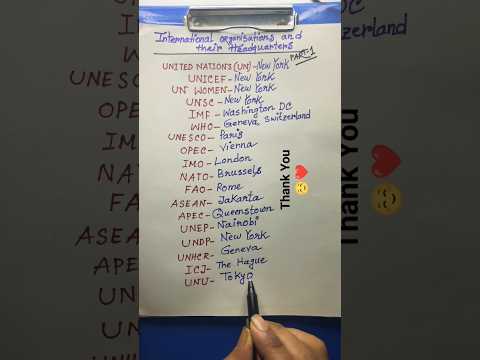 International organisations and
their Headquarters
PART-1
UNITED NATIONS (UN) - New York
UNICEF - New York
UN WOMEN - New York
UNSC - New York
IMF - Washington DC
WHO - Geneva, Switzerland
UNESCO - Paris
OPEC - Vienna
IMO - London
NATO - Brussels
FAO - Rome
ASEAN - Jakanta
APEC - Queenstown
UNEP - Nairobi
UNDP - New York
UNHCR - Geneva
ICJ - The Hague
UNU - Tokyo
Thank You